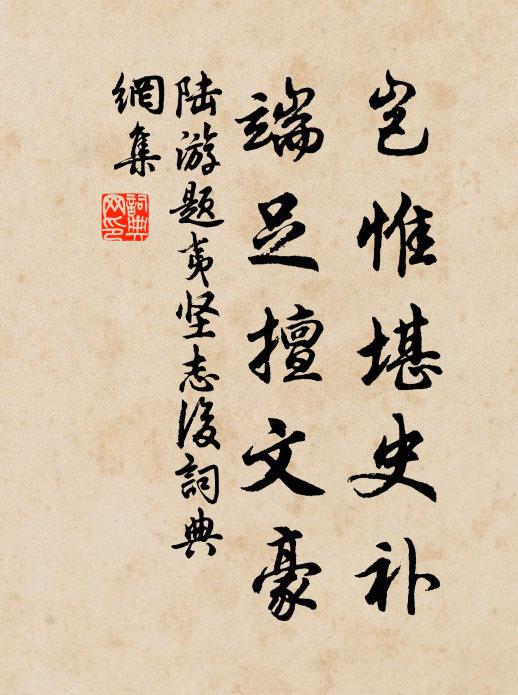 岂惟堪史补
端足擅文豪
陆游题夷坚志後詞典
網集
詞典
网印